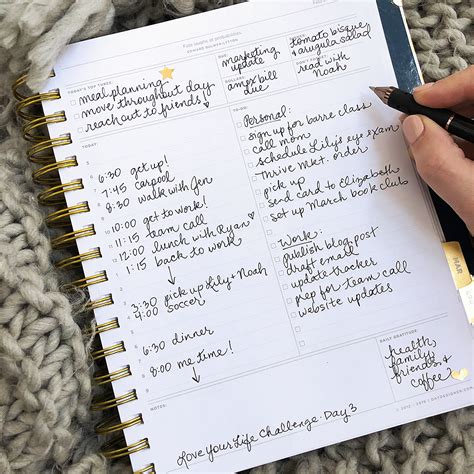 marketing update
DOLLARS
amex bill due
tomato bisque & arugula salad
read with Noah
TODAY'S TOP THREE
meal planning
move throughout day
reach out to friends!
TODAY
6:30 get up!
7:45 carpool
8:30 walk with Jen
10:00 get to work!
11:15 team call
12:00 lunch with Ryan ♡
1:15 back to work
3:30 pick up Lily + Noah
4:00 soccer
6:30 dinner
8:00 me time!
TO-DO
Personal:
sign up for barre class
call mom
schedule Lily's eye exam
Thrive Mkt. order
pick up
send card to Elizabeth
set up March book club
Work:
publish blog post
draft email
update tracker
prep for team call
website updates
DAILY GRATITUDE
health,
family,
friends, &
coffee
NOTES
Love Your Life Challenge: Day 3
MAR